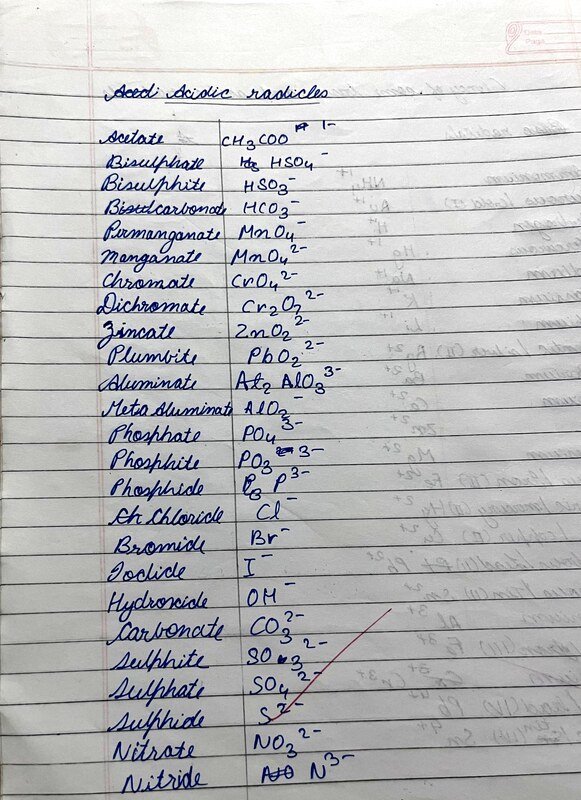 Date
Page
Acedi Acidic radicles
Acetate CH3COO 1-
Bisulphate HSO4-
Bisulphite HSO3-
Bisulcarbonate HCO3-
Permanganate MnO4-
Manganate MnO4 2-
Chromate CrO4 2-
Dichromate Cr2O7 2-
Zincate ZnO2 2-
Plumbite PbO2 2-
Aluminate AlO3 3-
Meta Aluminate AlO2-
Phosphate PO4 3-
Phosphite PO3 3-
Phosphide P3-
Ch Chloride Cl-
Bromide Br-
Iodide I-
Hydroxide OH-
Carbonate CO3 2-
Sulphite SO3 2-
Sulphate SO4 2-
Sulphide S2-
Nitrate NO3 2-
Nitride N3-